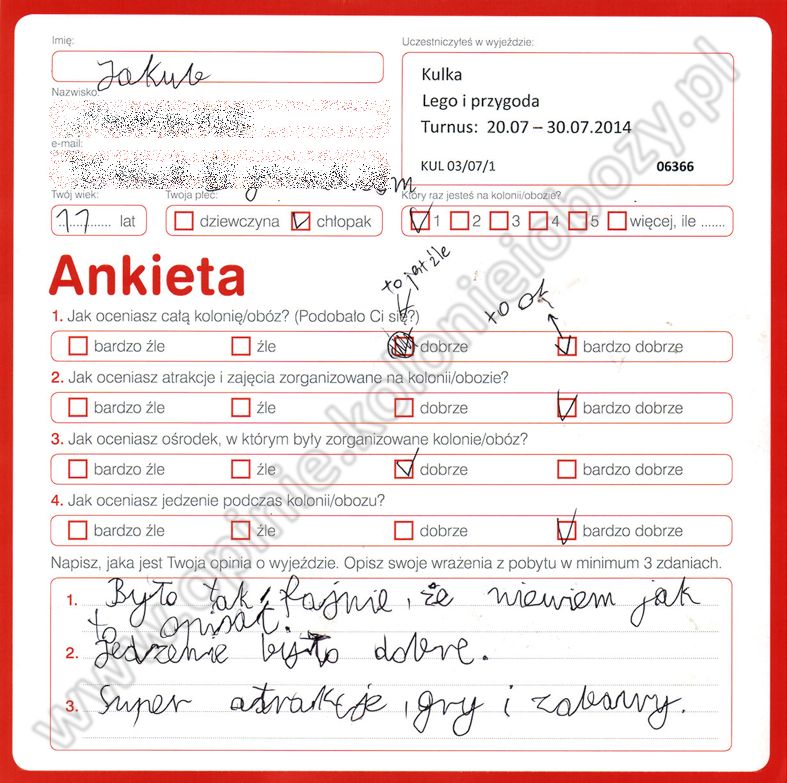 Imię:
Jakub
Uczestniczyłeś w wyjeździe:
Kulka
Lego i przygoda
Turnus: 20.07 – 30.07.2014
KUL 03/07/1 06366
Nazwisko:
e-mail:
Twój wiek:
11 lat
Twoja płeć:
dziewczyna chłopak
Który raz jesteś na kolonii/obozie?
1 2 3 4 5 więcej, ile .......
Ankieta
to jest źle
to ok
1. Jak oceniasz całą kolonię/obóz? (Podobało Ci się?)
bardzo źle źle dobrze bardzo dobrze
2. Jak oceniasz atrakcje i zajęcia zorganizowane na kolonii/obozie?
bardzo źle źle dobrze bardzo dobrze
3. Jak oceniasz ośrodek, w którym były zorganizowane kolonie/obóz?
bardzo źle źle dobrze bardzo dobrze
4. Jak oceniasz jedzenie podczas kolonii/obozu?
bardzo źle źle dobrze bardzo dobrze
Napisz, jaka jest Twoja opinia o wyjeździe. Opisz swoje wrażenia z pobytu w minimum 3 zdaniach.
1. Było tak fajnie, że niewiem jak
to opisać.
2. Jedzenie było dobre.
3. Super atrakcje, gry i zabawy.
www.opinie.kolonieiobozy.pl